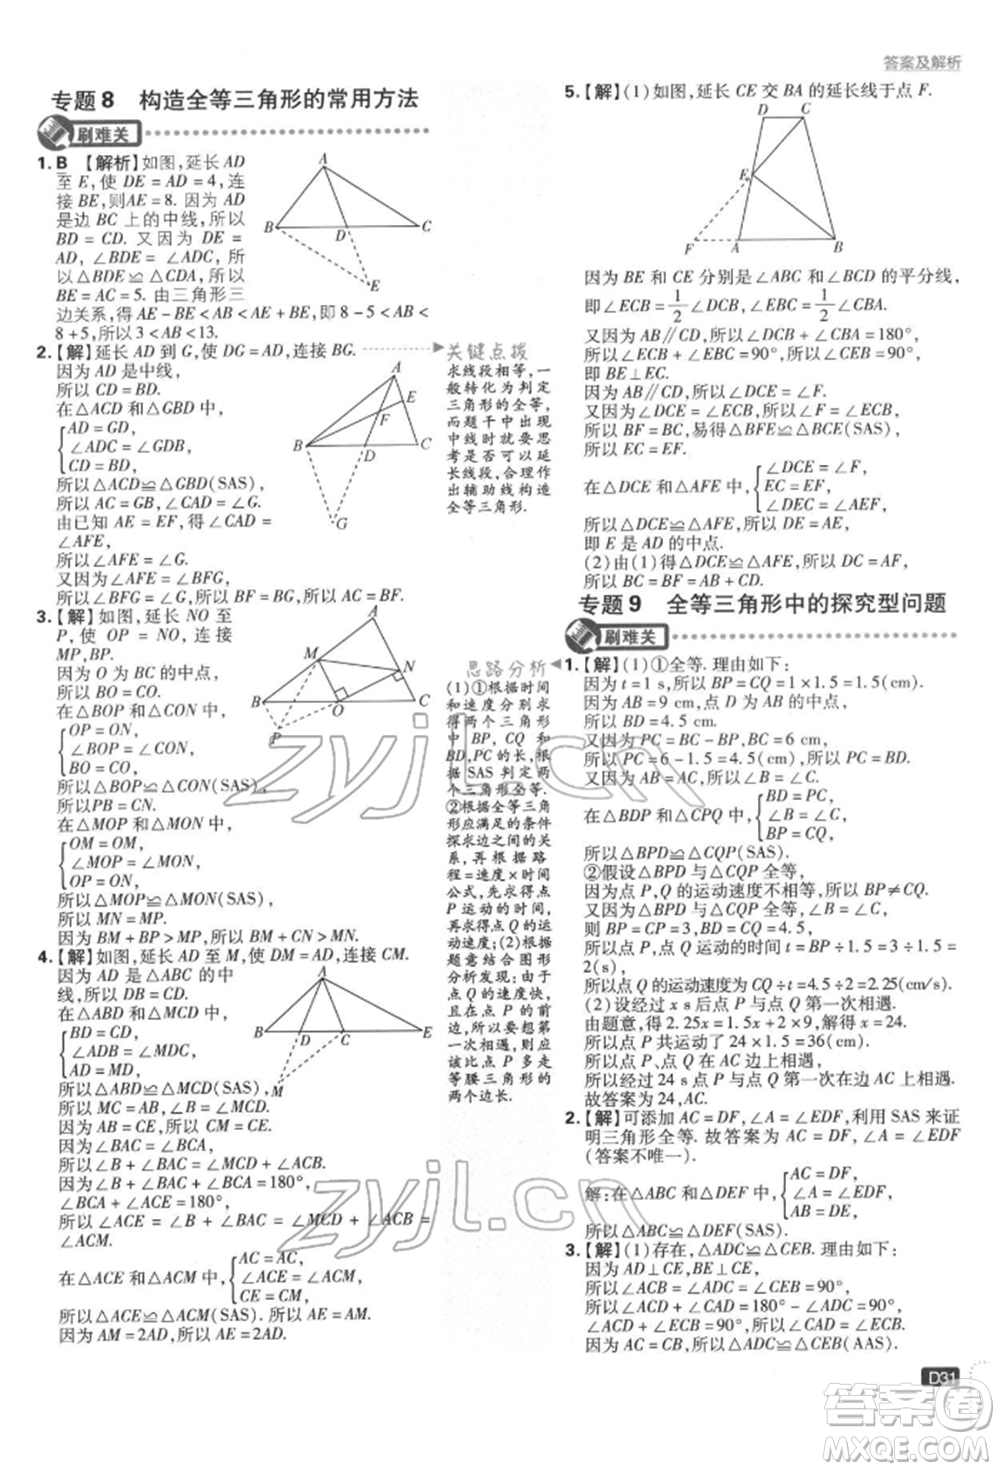 答案及解析
专题8 构造全等三角形的常用方法
刷难关
1. B 【解析】如图,延长 AD
至 E, 使 DE = AD = 4, 连
接 BE,则AE = 8. 因为 AD
是边 BC 上的中线,所以
BD = CD. 又因为 DE =
AD, ∠BDE = ∠ADC, 所
以 △BDE ≌ △CDA, 所以
BE = AC = 5. 由三角形三
边关系,得 AE - BE < AB < AE + BE, 即 8 - 5 < AB <
8 + 5,所以 3 < AB < 13.
A
B
D
C
E
2.【解】延长 AD 到 G, 使 DG = AD,连接 BG.
因为 AD 是中线,
所以 CD = BD.
在△ACD 和△GBD 中,
AD = GD,
∠ADC = ∠GDB,
CD = BD,
所以△ACD≌△GBD(SAS),
所以 AC = GB, ∠CAD = ∠G.
由已知 AE = EF,得∠CAD =
∠AFE,
所以∠AFE = ∠G.
又因为∠AFE = ∠BFG,
所以∠G = ∠BFG,所以 BF = BG,所以 BF = AC.
A
E
F
B
D
C
G
3.【解】如图, 延长 NO 至
P, 使 OP = NO, 连接
MP,BP.
因为 O 为 BC 的中点,
所以 BO = CO.
在△BOP 和△CON 中,
OP = ON,
∠BOP = ∠CON,
BO = CO,
所以△BOP≌△CON(SAS),
所以PB = CN.
在△MOP 和△MON 中,
OM = OM,
∠MOP = ∠MON,
OP = ON,
所以△MOP≌△MON(SAS),
所以 MN = MP.
因为 BM + BP > MP,所以 BM + CN > MN.
A
M
N
B
O
C
P
4.【解】如图,延长 AD 至 M,使 DM = AD,连接 MC.
因为 AD 是△ABC 的中
线,所以 BD = CD.
在△ABD 和△MCD 中,
BD = CD,
∠ADB = ∠MDC,
AD = MD,
所以△ABD≌△MCD(SAS),
所以 MC = AB, ∠B = ∠MCD.
因为 AB = CE,所以 MC = CE.
因为∠BAC = ∠BCA,
所以∠B + ∠BAC = ∠MCD + ∠BCA.
因为∠B + ∠BAC + ∠BCA = 180°,
∠BCA + ∠ACE = 180°,
所以 ∠ACE = ∠B + ∠BAC = ∠MCD + ∠BCA =
∠ACM.
在△ACE 和△ACM 中,
AC = AC,
∠ACE = ∠ACM,
CE = CM,
所以△ACE≌△ACM(SAS),所以 AE = AM.
因为 AM = 2AD,所以 AE = 2AD.
A
B
D
C
E
M
关键点拨
求线段相等,一
般转化为判定
三角形的全等,
而题干中出现
中线时就要思
考是否可以延
长线段,合理作
出辅助线构造
全等三角形.
思路分析
(1)①根据时间
和速度分别求
得两个三角形
中 BP, CQ 和
BD,PC 的长,根
据 SAS 判定两
个三角形全等.
②根据全等三角
形应满足的条件
探求边之间的关
系,再根据路
程=速度×时间
公式,先求得点
P 运动的时间,
再求得点 Q 的运
动速度;(2)根
据题意结合图形
分析发现:由于
点 Q 的速度快,
且在点 P 的前
边,所以要想第
一次相遇,则应
该比点 P 多走
等腰三角形的
两个边长.
5.【解】(1)如图,延长 CE 交 BA 的延长线于点 F.
D
C
E
F
A
B
因为 BE 和 CE 分别是∠ABC 和∠BCD 的平分线,
即∠ECB = 1/2 ∠DCB, ∠EBC = 1/2 ∠CBA.
又因为 AB∥CD,所以∠DCB + ∠CBA = 180°,
所以∠ECB + ∠EBC = 90°,所以∠BEC = 90°,
即 BE⊥EC.
因为 AB∥CD,所以∠DCE = ∠F.
又因为∠DCE = ∠ECB,所以∠F = ∠ECB,
所以 BF = BC,易得△BFE≌△BCE(SAS),
所以 EC = EF.
在△DCE 和△AFE 中,
∠DCE = ∠F,
EC = EF,
∠DEC = ∠AEF,
所以△DCE≌△AFE,所以 DE = AE,
即 E 是 AD 的中点.
(2)由(1)得△DCE≌△AFE,所以 DC = AF,
所以 BC = BF = AB + AF = AB + CD.
专题9 全等三角形中的探究型问题
刷难关
1.【解】(1)①全等. 理由如下:
因为 t = 1 s,所以 BP = CQ = 1 × 1.5 = 1.5(cm).
因为 AB = 9 cm,点 D 为 AB 的中点,
所以 BD = 4.5 cm.
又因为 PC = BC - BP,BC = 6 cm,
所以 PC = 6 - 1.5 = 4.5(cm),所以 PC = BD.
又因为 AB = AC,所以∠B = ∠C.
在△BPD 和△CPQ 中,
BD = PC,
∠B = ∠C,
BP = CQ,
所以△BPD≌△CQP(SAS).
②假设△BPD 与△CQP 全等,
因为点 P,Q 的运动速度不相等,所以 BP≠CQ.
又因为△BPD 与△CQP 全等, ∠B = ∠C,
则 BP = CP = 3 cm,CQ = BD = 4.5 cm,
所以点 P,点 Q 运动的时间为 BP ÷ 1.5 = 3 ÷ 1.5 =
2(s),
所以点 Q 的运动速度为 CQ ÷ t = 4.5 ÷ 2 = 2.25(cm/s).
(2)设经过 x s后点 P 与点 Q 第一次相遇.
由题意,得 2.25x = 1.5x + 2 × 9,解得 x = 24.
所以点 P 共运动了 24 × 1.5 = 36(cm),
所以点 P、点 Q 在 AC 边上相遇,
所以经过 24 s 点 P 与点 Q 第一次在边 AC 上相遇.
故答案为 24,AC.
2.【解】可添加 AC = DF, ∠A = ∠EDF,利用 SAS 来证
明三角形全等. 故答案为 AC = DF, ∠A = ∠EDF
(答案不唯一).
解:在△ABC 和△DEF 中,
AC = DF,
∠A = ∠EDF,
AB = DE,
所以△ABC≌△DEF(SAS).
3.【解】(1)存在,△ADC≌△CEB. 理由如下:
因为 AD⊥CE,BE⊥CE,
所以∠ACB = ∠ADC = ∠CEB = 90°,
所以∠ACD + ∠CAD = 180° - ∠ADC = 90°,
∠ACD + ∠ECB = 90°,所以∠CAD = ∠ECB.
因为 AC = CB,所以△ADC≌△CEB(AAS).
D31
zyjl.cn
zyjl.cn
答案圈
MXQE.COM